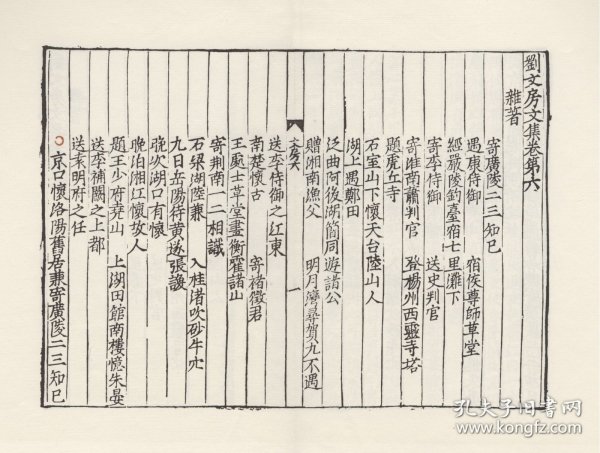 劉文房文集卷第六
雜著
寄廣陵二三知己
遇康侍御　宿侯尊師草堂
經嚴陵釣臺宿七里灘下
寄李侍御　送史判官
寄淮南蕭判官　登楊州西靈寺塔
題虎丘寺
石室山下懷天台陸山人
湖上遇鄭田
泛曲阿後湖簡同遊諸公
贈湘南漁父　明月灣尋賀九不遇
文房六
一
送李侍御之江東
南楚懷古　寄褚徵君
王處士草堂畫衡霍諸山
寄荆南一二相識
石梁湖陸兼　入桂渚吹砂牛穴
九日岳陽待黄遂張諼
晚次湖口有懷
晚泊湘江懷故人
題王少府堯山　上湖田館南樓憶朱晏
送李補闕之上都
送袁明府之任
京口懷洛陽舊居兼寄廣陵二三知己
孔夫子旧书网
www.kongfz.com